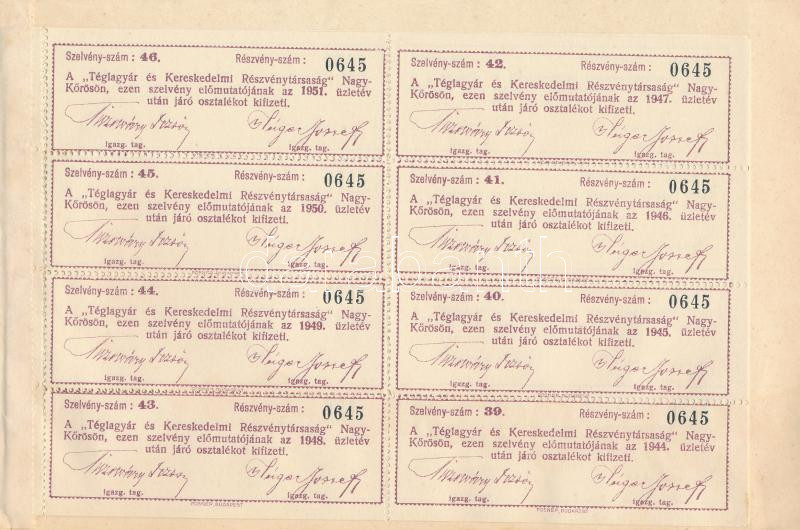 Szelvény-szám : 46. Részvény-szám : 0645
A „Téglagyár és Kereskedelmi Részvénytársaság“ Nagy-
Kőrösön, ezen szelvény előmutatójának az 1951. üzletév
után járó osztalékot kifizeti.
igazg. tag. igazg. tag.
Szelvény-szám : 45. Részvény-szám : 0645
A „Téglagyár és Kereskedelmi Részvénytársaság“ Nagy-
Kőrösön, ezen szelvény előmutatójának az 1950. üzletév
után járó osztalékot kifizeti.
igazg. tag. igazg. tag.
Szelvény-szám : 44. Részvény-szám : 0645
A „Téglagyár és Kereskedelmi Részvénytársaság“ Nagy-
Kőrösön, ezen szelvény előmutatójának az 1949. üzletév
után járó osztalékot kifizeti.
igazg. tag. igazg. tag.
Szelvény-szám : 43. Részvény-szám : 0645
A „Téglagyár és Kereskedelmi Részvénytársaság“ Nagy-
Kőrösön, ezen szelvény előmutatójának az 1948. üzletév
után járó osztalékot kifizeti.
igazg. tag. igazg. tag.
POSNER, BUDAPEST
Szelvény-szám : 42. Részvény-szám : 0645
A „Téglagyár és Kereskedelmi Részvénytársaság“ Nagy-
Kőrösön, ezen szelvény előmutatójának az 1947. üzletév
után járó osztalékot kifizeti.
igazg. tag. igazg. tag.
Szelvény-szám : 41. Részvény-szám : 0645
A „Téglagyár és Kereskedelmi Részvénytársaság“ Nagy-
Kőrösön, ezen szelvény előmutatójának az 1946. üzletév
után járó osztalékot kifizeti.
igazg. tag. igazg. tag.
Szelvény-szám : 40. Részvény-szám : 0645
A „Téglagyár és Kereskedelmi Részvénytársaság“ Nagy-
Kőrösön, ezen szelvény előmutatójának az 1945. üzletév
után járó osztalékot kifizeti.
igazg. tag. igazg. tag.
Szelvény-szám : 39. Részvény-szám : 0645
A „Téglagyár és Kereskedelmi Részvénytársaság“ Nagy-
Kőrösön, ezen szelvény előmutatójának az 1944. üzletév
után járó osztalékot kifizeti.
igazg. tag. igazg. tag.
POSNER, BUDAPEST